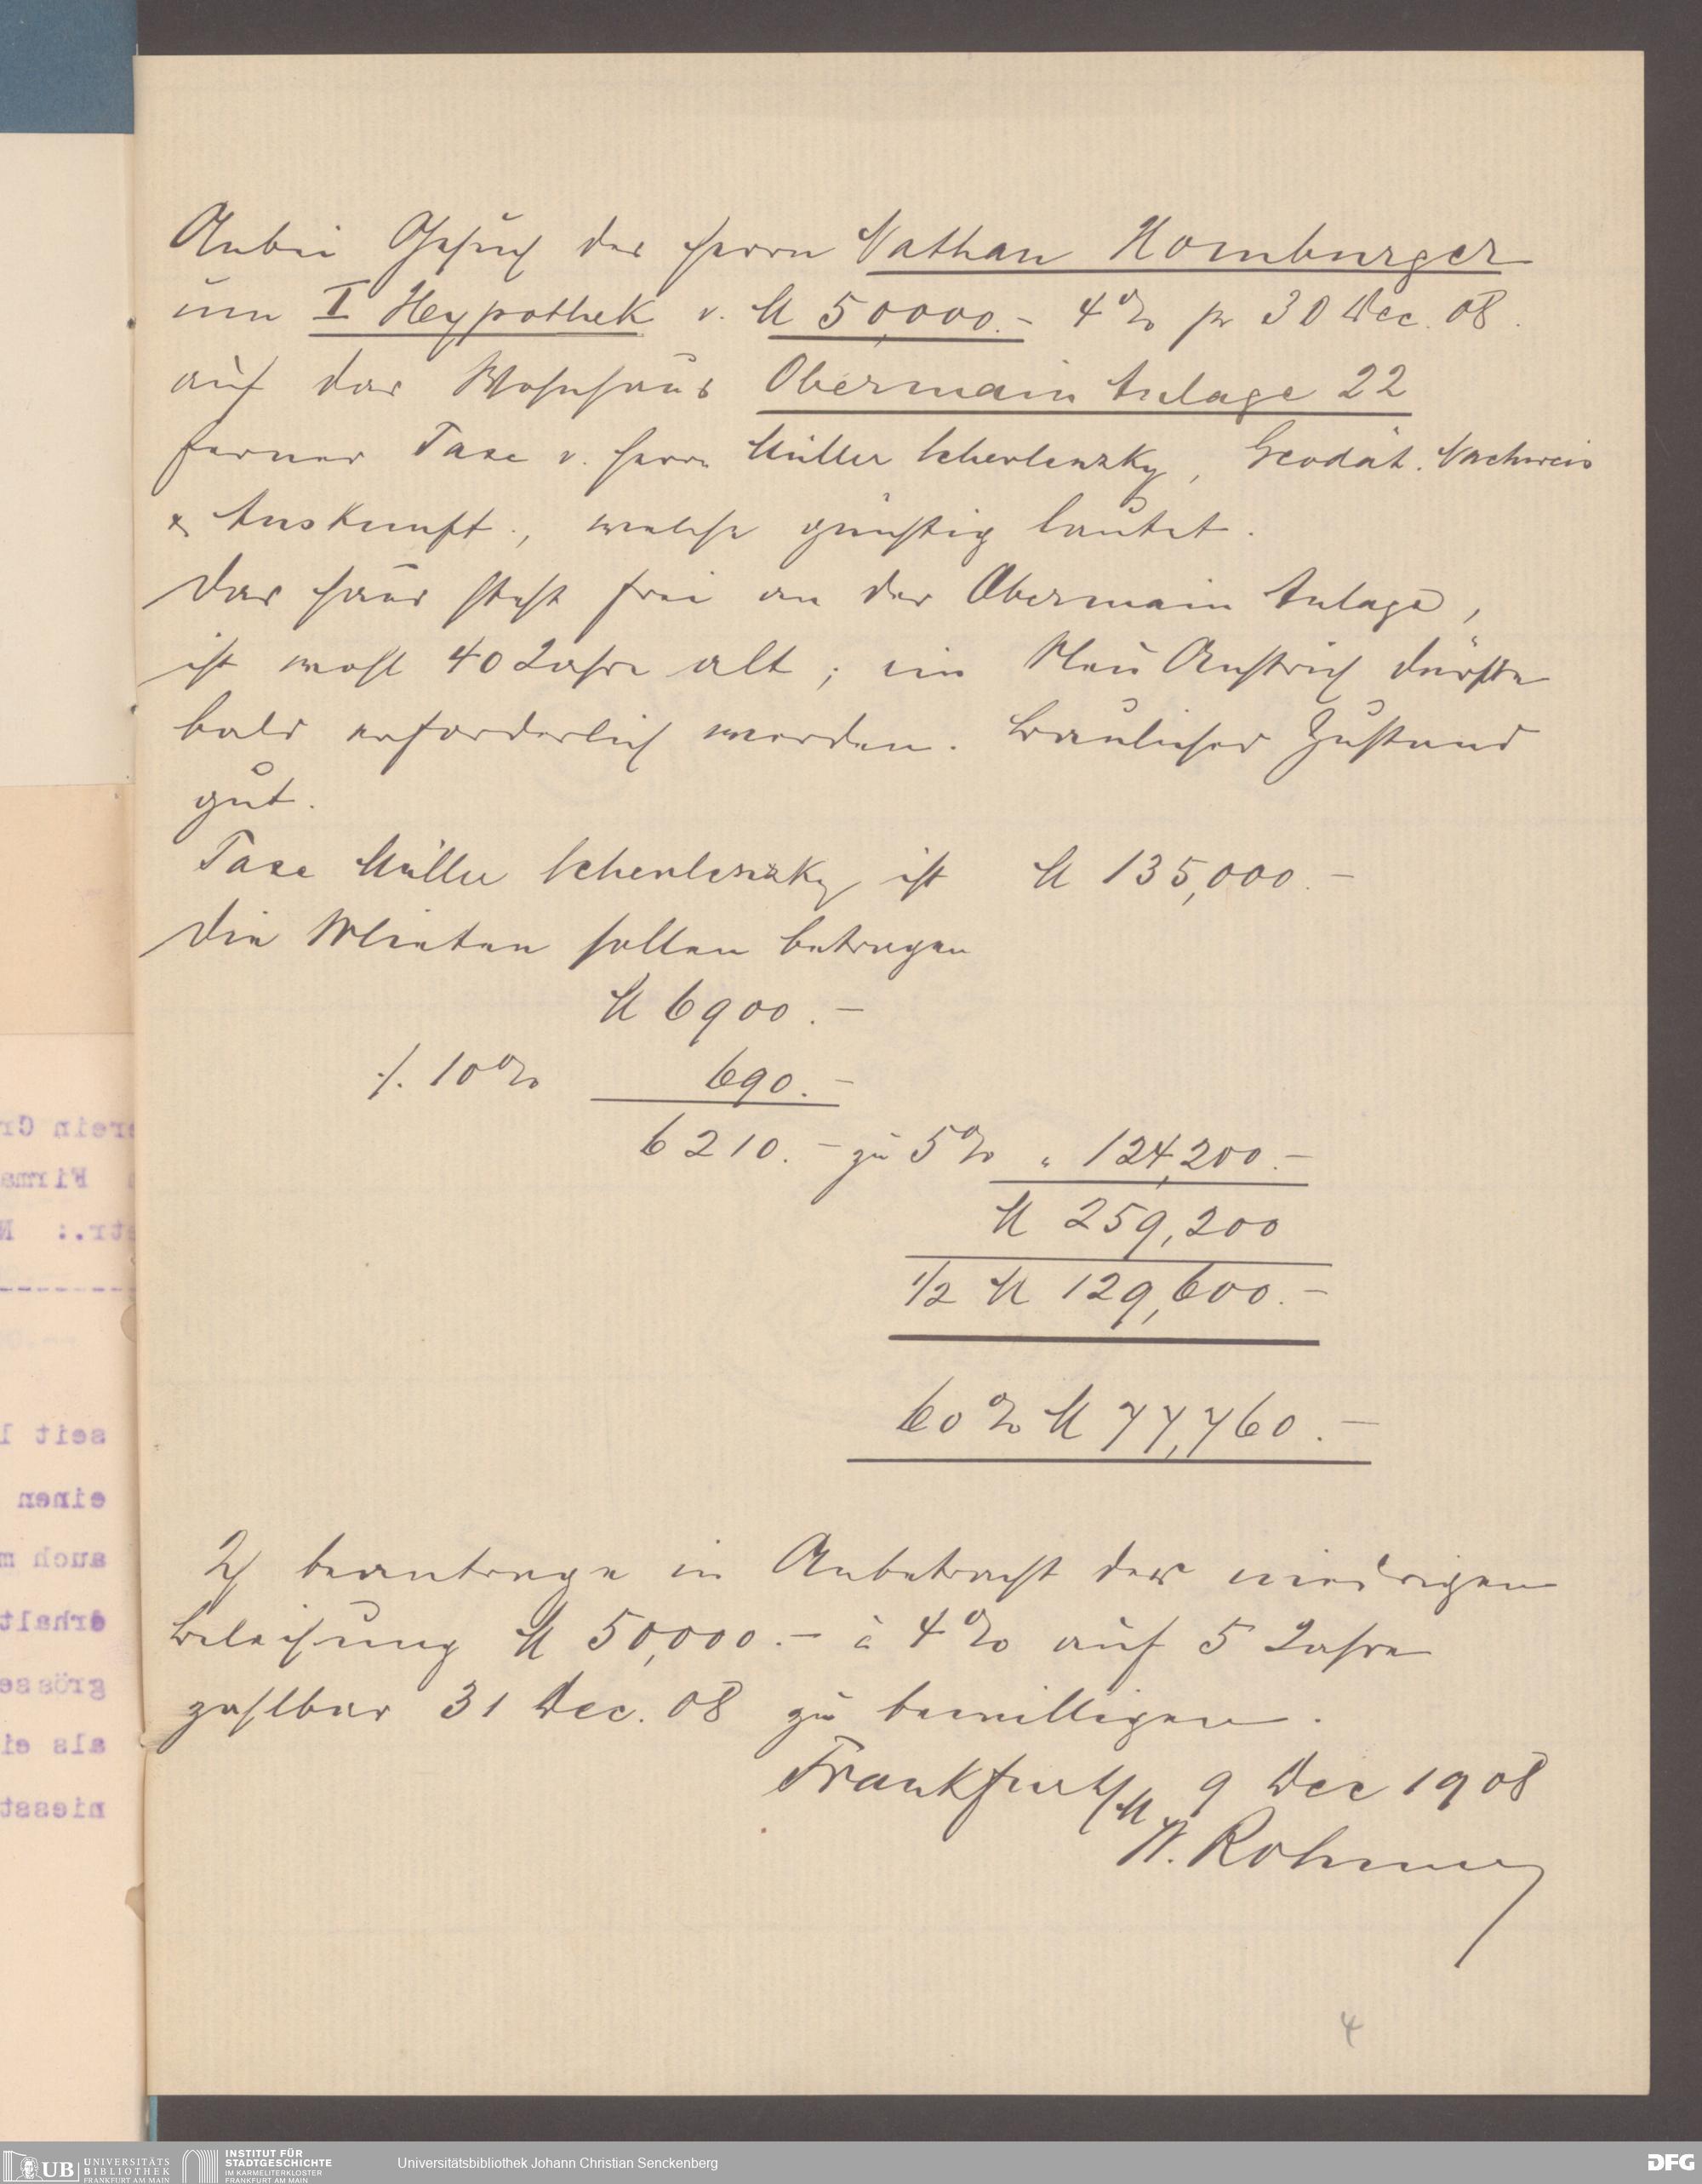 Anbei Gesuch des Herrn Nathan Homburger
um I Heypothek v. M 50,000.- 4% pr 30 Dec. 08.
auf das Wohnhaus Obermain Anlage 22
ferner Taxe v. Herrn Müller Scherlenzky, Geodät. Nachweis
& Auskunft., welche günstig lautet.
Das Haus steht frei an der Obermain Anlage,
ist wohl 40 Jahre alt; ein Neu Anstrich dürfte
bald erforderlich werden. Baulicher Zustand
gut.
Taxe Müller Scherlenzky ist M 135,000.-
Die Mieten sollen betragen
M 6900.-
./. 10% 690.-
6210.- zu 5% " 124,200.-
M 259,200
1/2 M 129,600.-
60% M 77,760.-
Ich beantrage in Anbetracht der niedrigen
Beleihung M 50,000.- à 4% auf 5 Jahre
zahlbar 31 Dec. 08 zu bewilligen.
Frankfurt/M 9 Dec 1908
W. Rohmer
4
rein Gr
Firma
str.: N
seit l
einen
auch m
erhalt
grösse
als ei
niesst
UB UNIVERSITÄTS
BIBLIOTHEK
FRANKFURT AM MAIN
INSTITUT FÜR
STADTGESCHICHTE
IM KARMELITERKLOSTER
FRANKFURT AM MAIN
Universitätsbibliothek Johann Christian Senckenberg
DFG